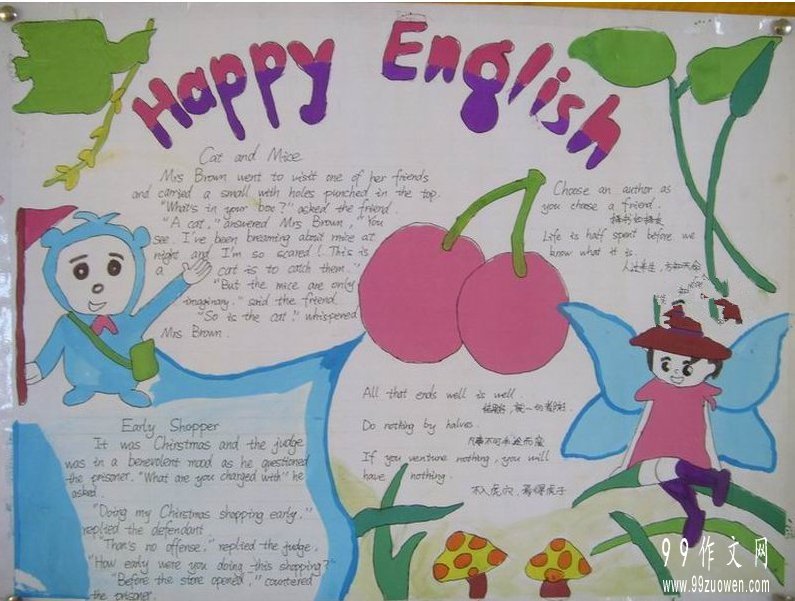 Happy English
Cat and Mice
Mrs Brown went to visit one of her friends
and carried a small with holes punched in the top.
"What's in your box?" asked the friend.
"A cat." answered Mrs Brown, "You
see. I've been breaming about mice at
night and I'm so scared! This is
a cat is to catch them."
"But the mice are only
imaginary." said the friend.
"So is the cat." whispened
Mrs Brown.
Choose an author as
you choose a friend.
择书如择友
Life is half spent before we
know what it is.
人过半生，方知天命
All that ends well is well
Do nothing by halves.
凡事不可半途而废
If you venture nothing, you will
have nothing.
不入虎穴，焉得虎子
Early Shopper
It was Chirstmas and the judge
was in a benevolent mood as he questioned
the prisoner. "What are you charged with" he
asked.
"Doing my Chirstmas shopping early."
replied the defendant
"That's no offense." replied the judge.
"How early were you doing this shopping?"
"Before the store opened," countered
the prisoner.
99作文网
www.99zuowen.com